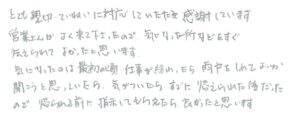 とても親切、ていねいに対応していただき感謝しています
営業さんがよく来て下さったので気になった所などをすぐ
伝えられてよかったと思います
気になったのは最初の頃仕事が終わったら雨戸をしてよいか
聞こうと思っていたら、気がついたらすでに帰られた後だった
ので帰られる前に指示してもらえたら良かったと思います